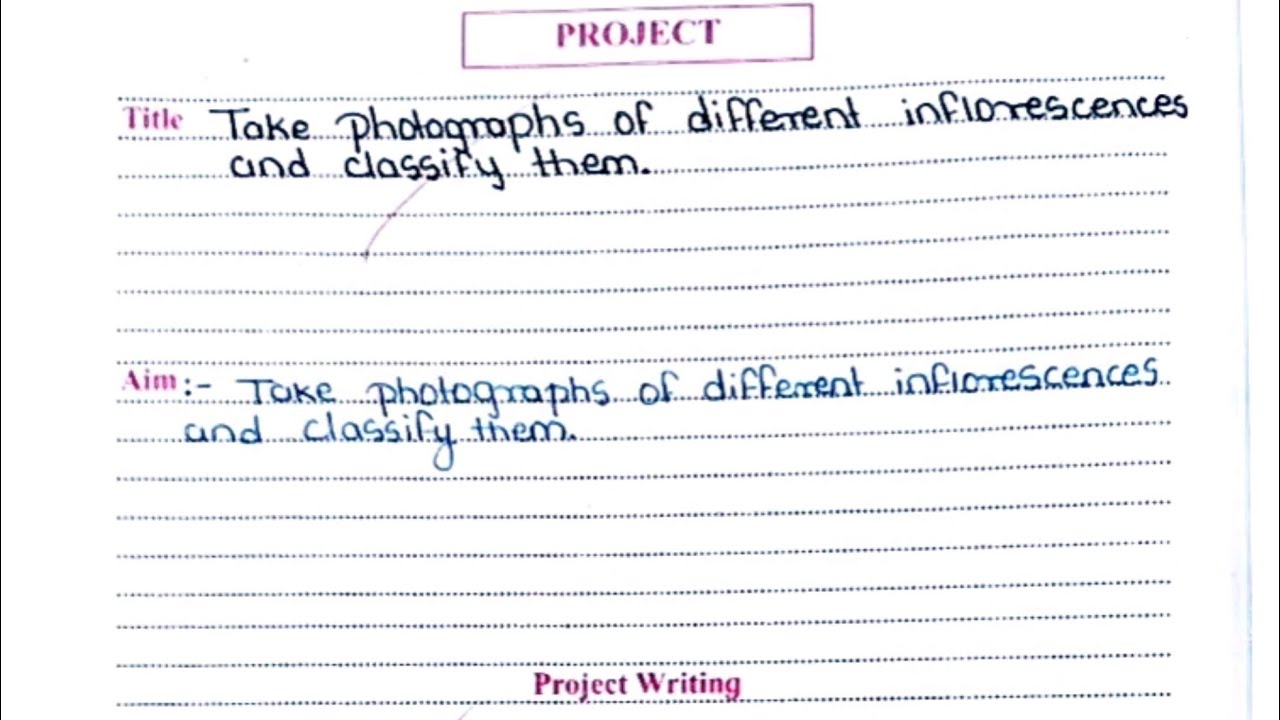 PROJECT
Title Take photographs of different inflorescences
and classify them.
Aim :- Take photographs of different inflorescences
and classify them.
Project Writing